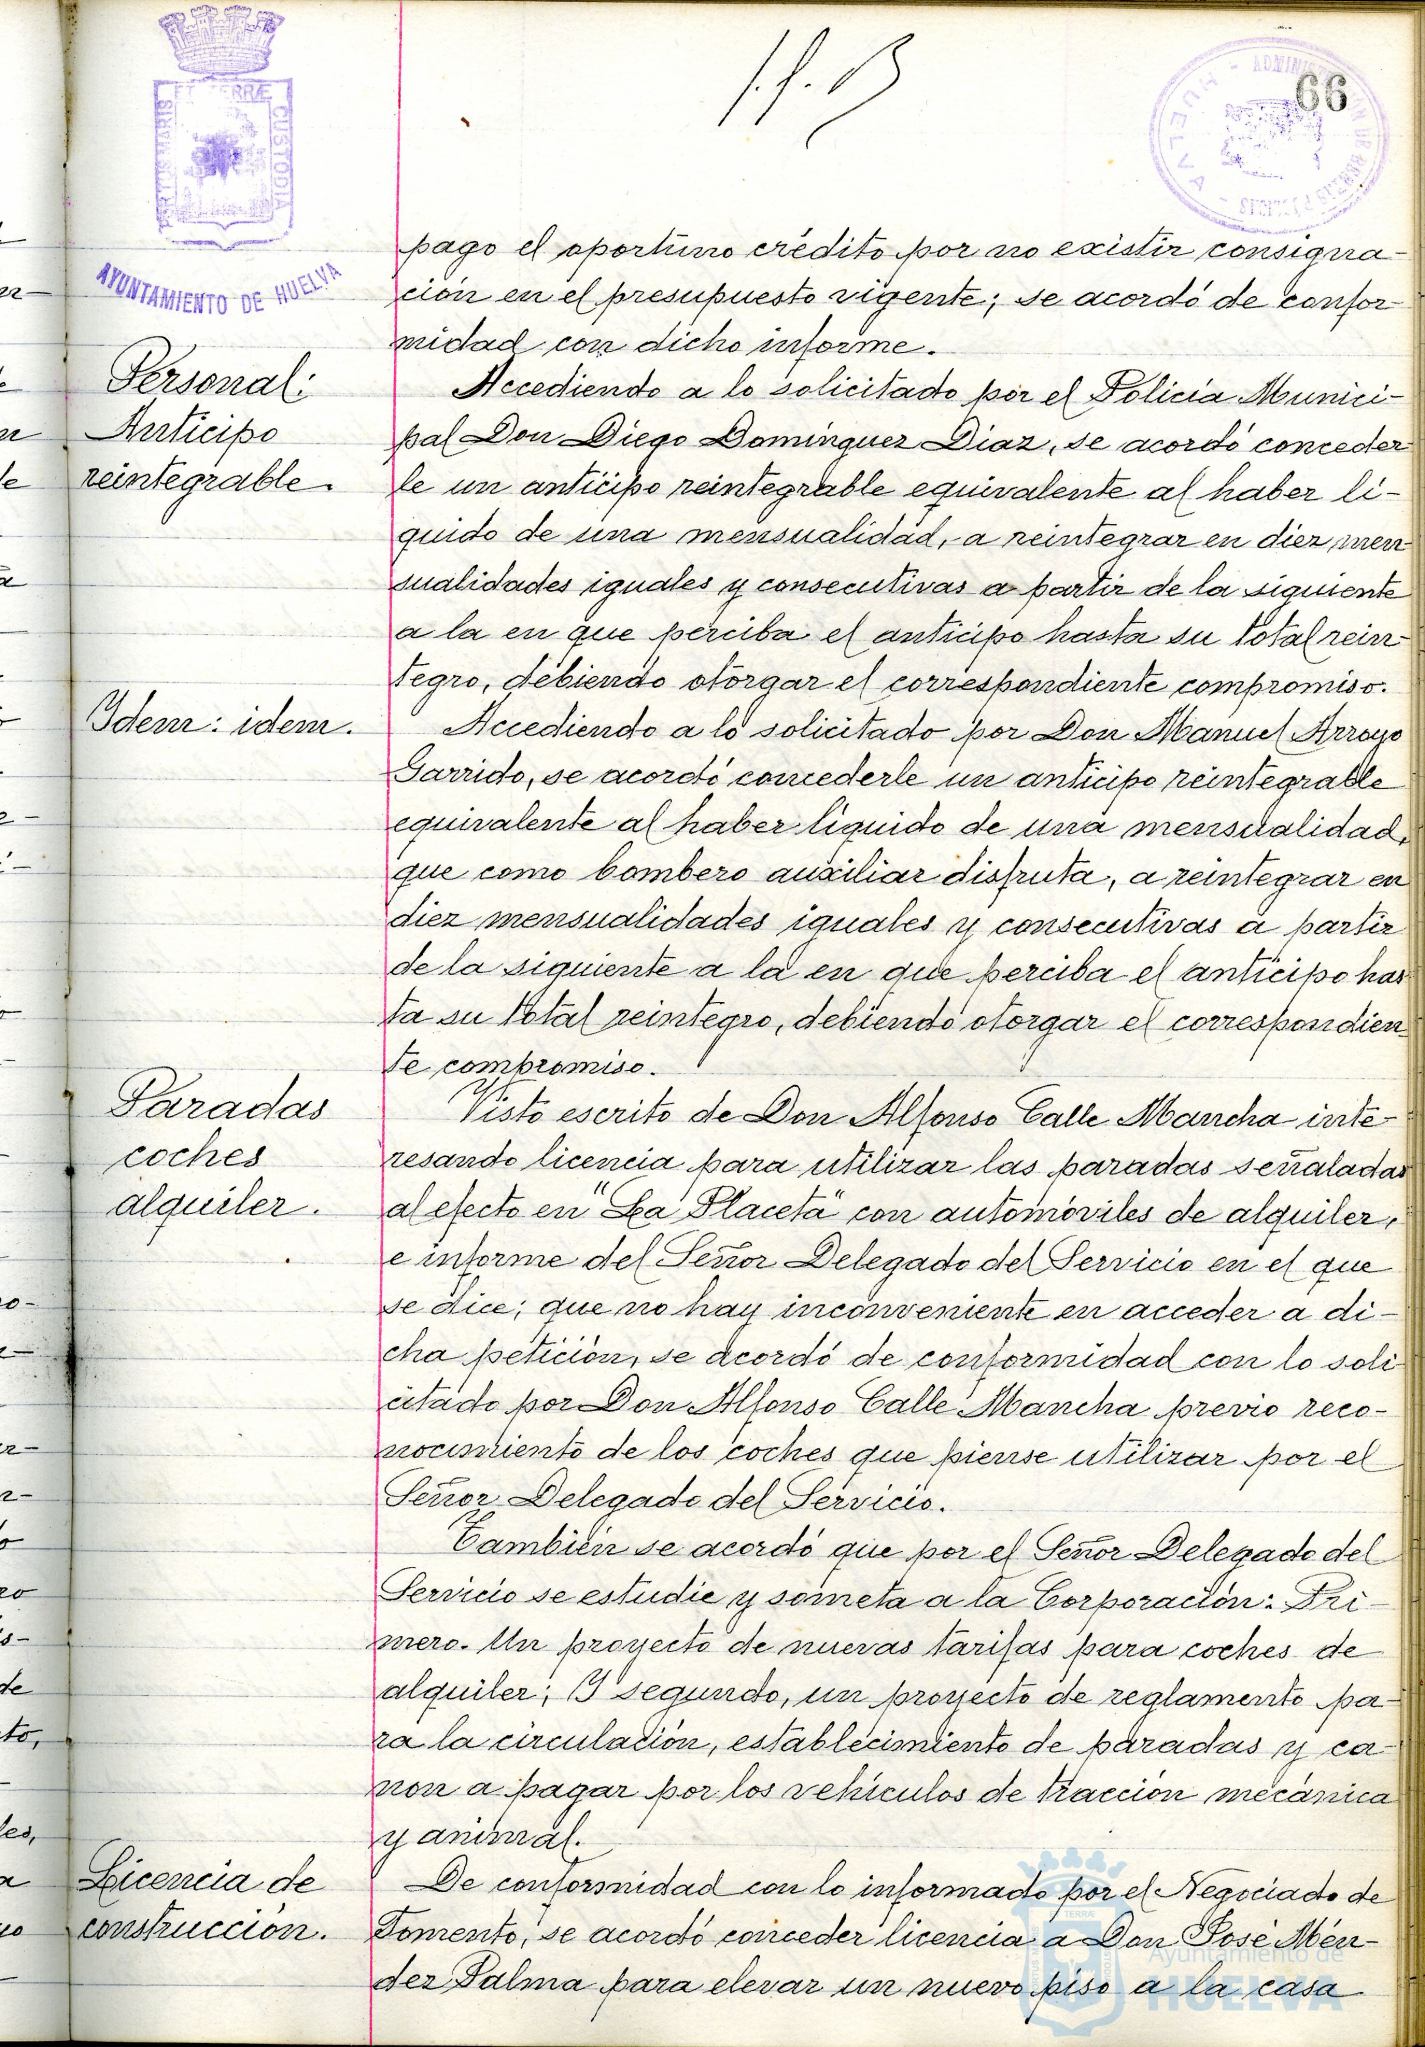 66
PORTUS MARIS ET TERRÆ CUSTODIA
AYUNTAMIENTO DE HUELVA
HUELVA
pago el oportuno crédito por no existir consigna-
ción en el presupuesto vigente; se acordó de confor-
midad con dicho informe.
Personal:
Anticipo
reintegrable.
Accediendo a lo solicitado por el Policía Munici-
pal Don Diego Domínguez Diaz, se acordó conceder
le un anticipo reintegrable equivalente al haber lí-
quido de una mensualidad, a reintegrar en diez men
sualidades iguales y consecutivas a partir de la siguiente
a la en que perciba el anticipo hasta su total rein-
tegro, debiendo otorgar el correspondiente compromiso.
Idem: idem.
Accediendo a lo solicitado por Don Manuel Arroyo
Garrido, se acordó concederle un anticipo reintegrable
equivalente al haber líquido de una mensualidad,
que como bombero auxiliar disfruta, a reintegrar en
diez mensualidades iguales y consecutivas a partir
de la siguiente a la en que perciba el anticipo has
ta su total reintegro, debiendo otorgar el correspondien
te compromiso.
Paradas
coches
alquiler.
Visto escrito de Don Alfonso Calle Mancha inte-
resando licencia para utilizar las paradas señaladas
al efecto en "La Placeta" con automóviles de alquiler,
e informe del Señor Delegado del Servicio en el que
se dice; que no hay inconveniente en acceder a di-
cha petición, se acordó de conformidad con lo soli
citado por Don Alfonso Calle Mancha previo reco-
nocimiento de los coches que piense utilizar por el
Señor Delegado del Servicio.
También se acordó que por el Señor Delegado del
Servicio se estudie y someta a la Corporación: Pri-
mero. Un proyecto de nuevas tarifas para coches de
alquiler; Y segundo, un proyecto de reglamento pa-
ra la circulación, establecimiento de paradas y ca-
non a pagar por los vehículos de tracción mecánica
y animal.
Licencia de
construcción.
De conformidad con lo informado por el Negociado de
Fomento, se acordó conceder licencia a Don José Mén-
dez Palma para elevar un nuevo piso a la casa
Ayuntamiento de
HUELVA